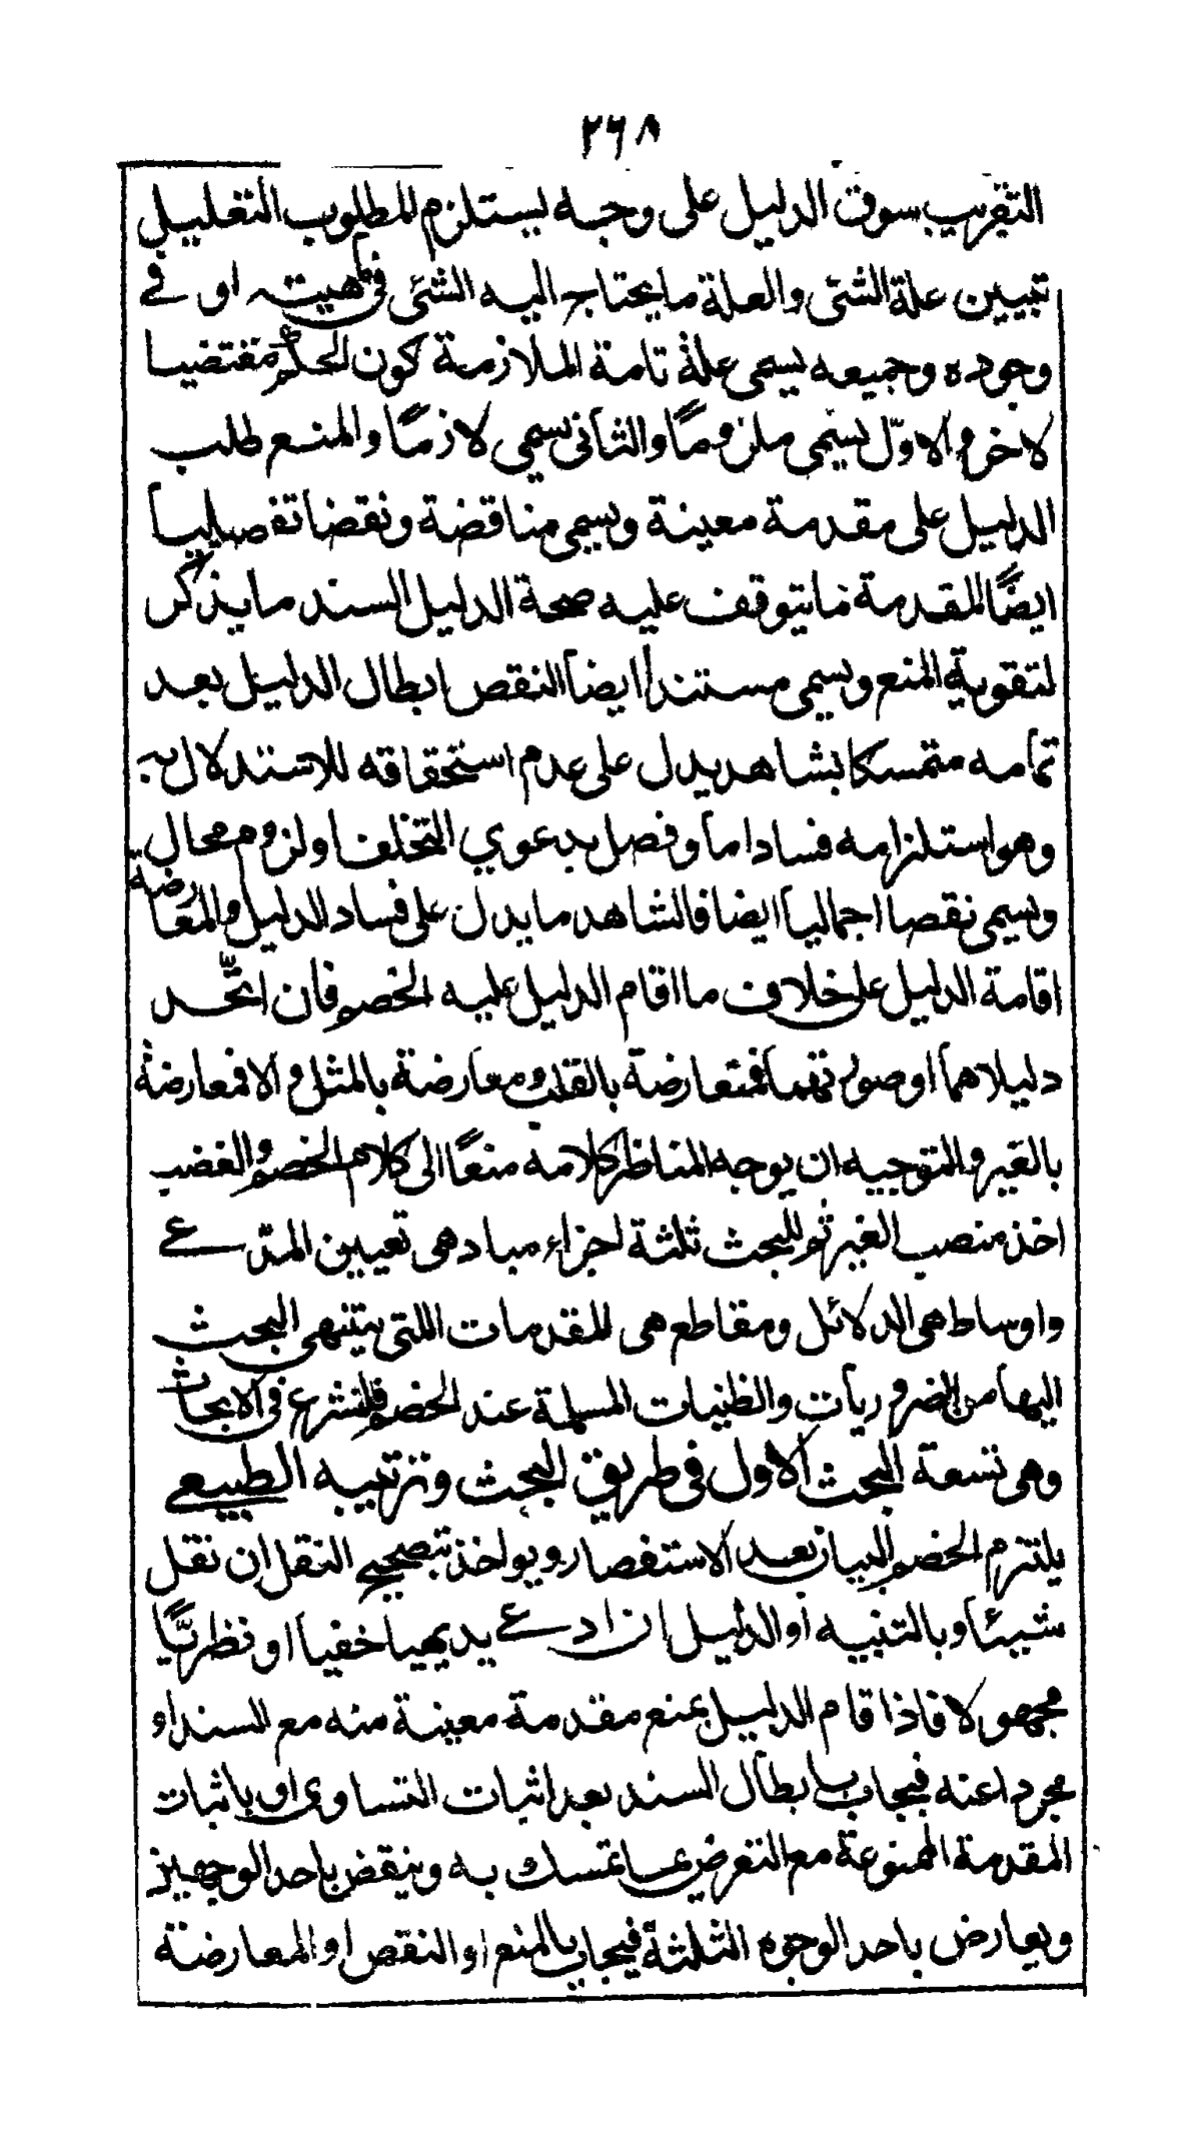 ٢٦٨
التقريب سوق الدليل على وجه يستلزم المطلوب التعليل
تبيين علة الشئ والعلة ما يحتاج اليه الشئ في ماهيته او في
وجوده وجميعه يسمى علة تامة الملازمة كون الحكم مقتضيا
لاخر والاوّل يسمى ملزومًا والثاني يسمى لازمًا والمنع طلب
الدليل على مقدمة معينة ويسمى مناقضة ونقضا تفصيليا
ايضًا المقدمة ما يتوقف عليه صحة الدليل السند ما يذكر
لتقوية المنع ويسمى مستندا ايضا النقص ابطال الدليل بعد
تمامه متمسكا بشاهد يدل على عدم استحقاقه للاستدلال به
وهو استلزامه فسادا ما وفصل بدعوي التخلف او لزوم محال
ويسمى نقصا اجماليا ايضا فالشاهد ما يدل على فساد الدليل والمعارضة
اقامة الدليل على خلاف ما اقام الدليل عليه الخصم فان اتّحد
دليلاهما او صورتهما فمتعارضة بالقلب ومعارضة بالمثل والا فمعارضة
بالغير والتوجيه ان يوجه المناظر كلامه منعًا الى كلام الخصم والغضب
اخذ منصب الغير ثم للبحث ثلثة اجزاء مباد هى تعيين المدّعى
واوساط هى الدلائل ومقاطع هى للمقدمات اللتى ينتهى البحث
اليها من الضروريات والظنيات المسلمة عند الخصم فلنشرع في الابحاث
وهى تسعة البحث الاول فى طريق البحث وترتيبه الطبيعي
يلتزم الخصم البيان بعد الاستفصار ويواخذ بتصحيح النقل ان نقل
شيئا وبالتنبيه او الدليل ان ادعى بديهيا خفيا او نظريًّا
مجهولا فاذا قام الدليل يمنع مقدمة معينة منه مع السند او
مجردا عنه فيجاب بابطال السند بعد اثبات التساوى او باثبات
المقدمة الممنوعة مع التعرض بما تمسك به وينقض باحد الوجهين
ويعارض باحد الوجوه الثلثة فيجاب بالمنع او النقص او المعارضة